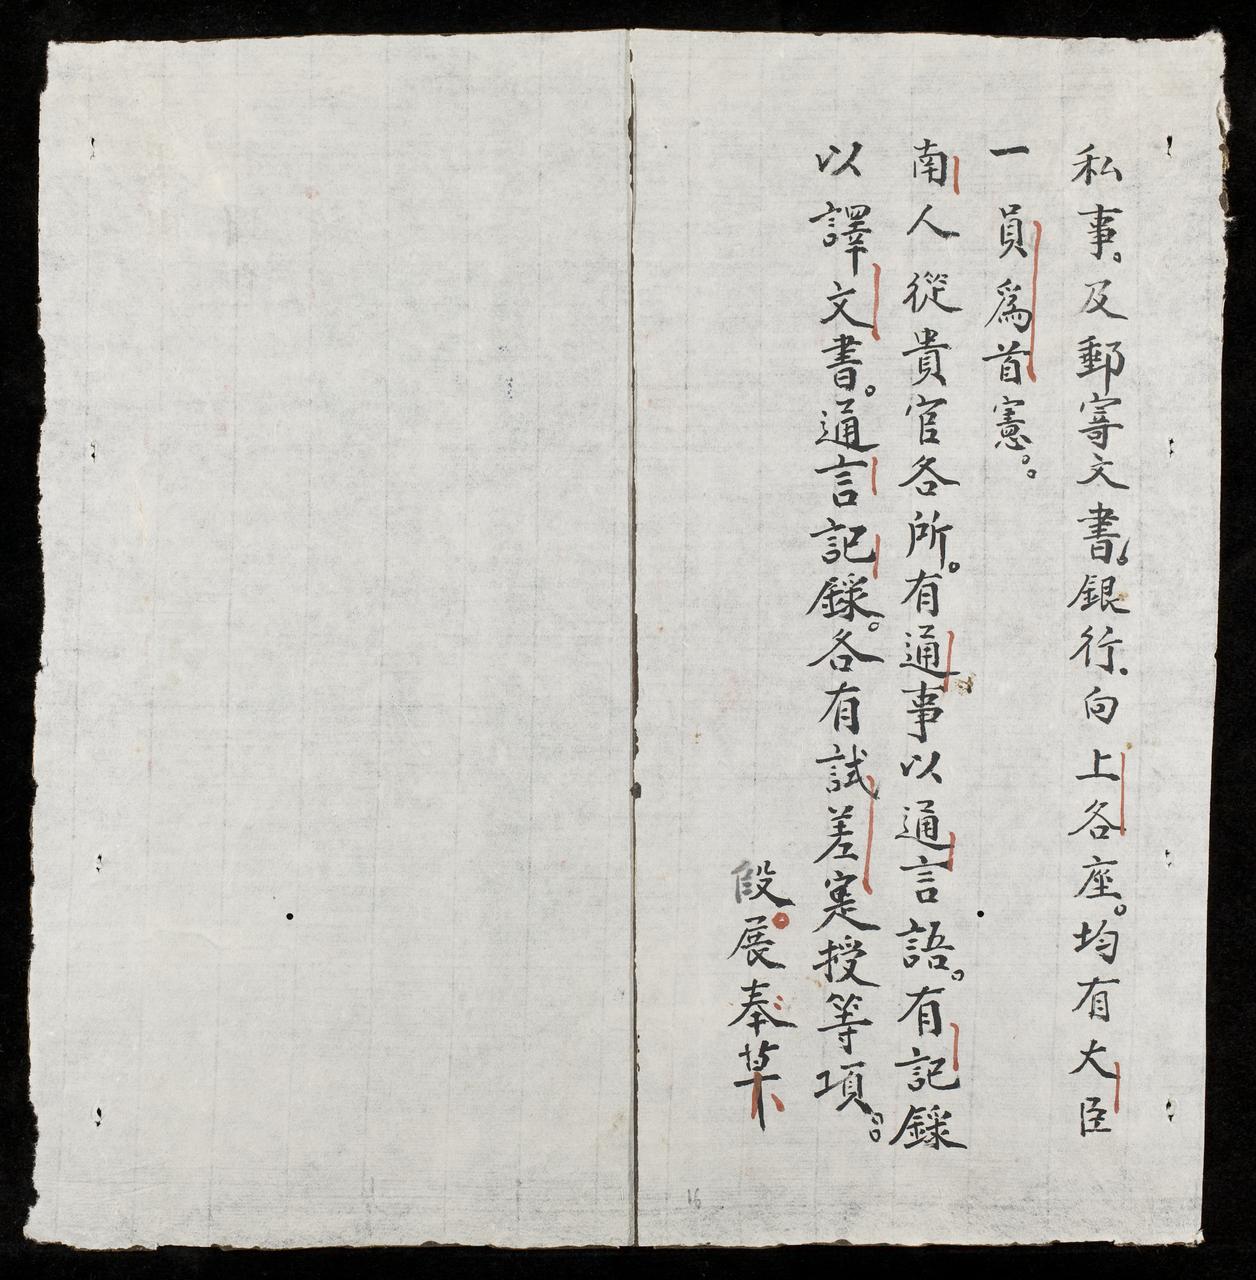 私事。及郵寄文書。銀行.向上各座。均有大臣
一員爲首憲。。
南人從貴官各所。有通事以通言語。有記錄
以譯文書。通言記錄。各有試差寔授等項。。
段展奉草
16